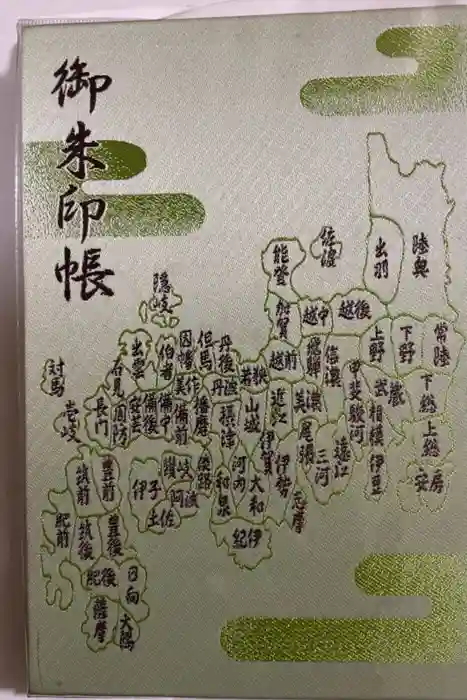 御朱印帳
陸奥
出羽
佐渡
能登
加賀
越中
越後
常陸
下野
上野
下総
上総
安房
武蔵
相模
伊豆
甲斐
駿河
信濃
飛騨
越前
美濃
遠江
三河
尾張
近江
若狭
丹後
丹波
但馬
因幡
伯耆
隠岐
出雲
石見
美作
播磨
備前
備中
備後
安芸
周防
長門
対馬
壱岐
山城
摂津
伊賀
伊勢
志摩
大和
河内
和泉
紀伊
淡路
讃岐
阿波
伊予
土佐
豊前
筑前
筑後
肥前
豊後
肥後
日向
薩摩
大隅